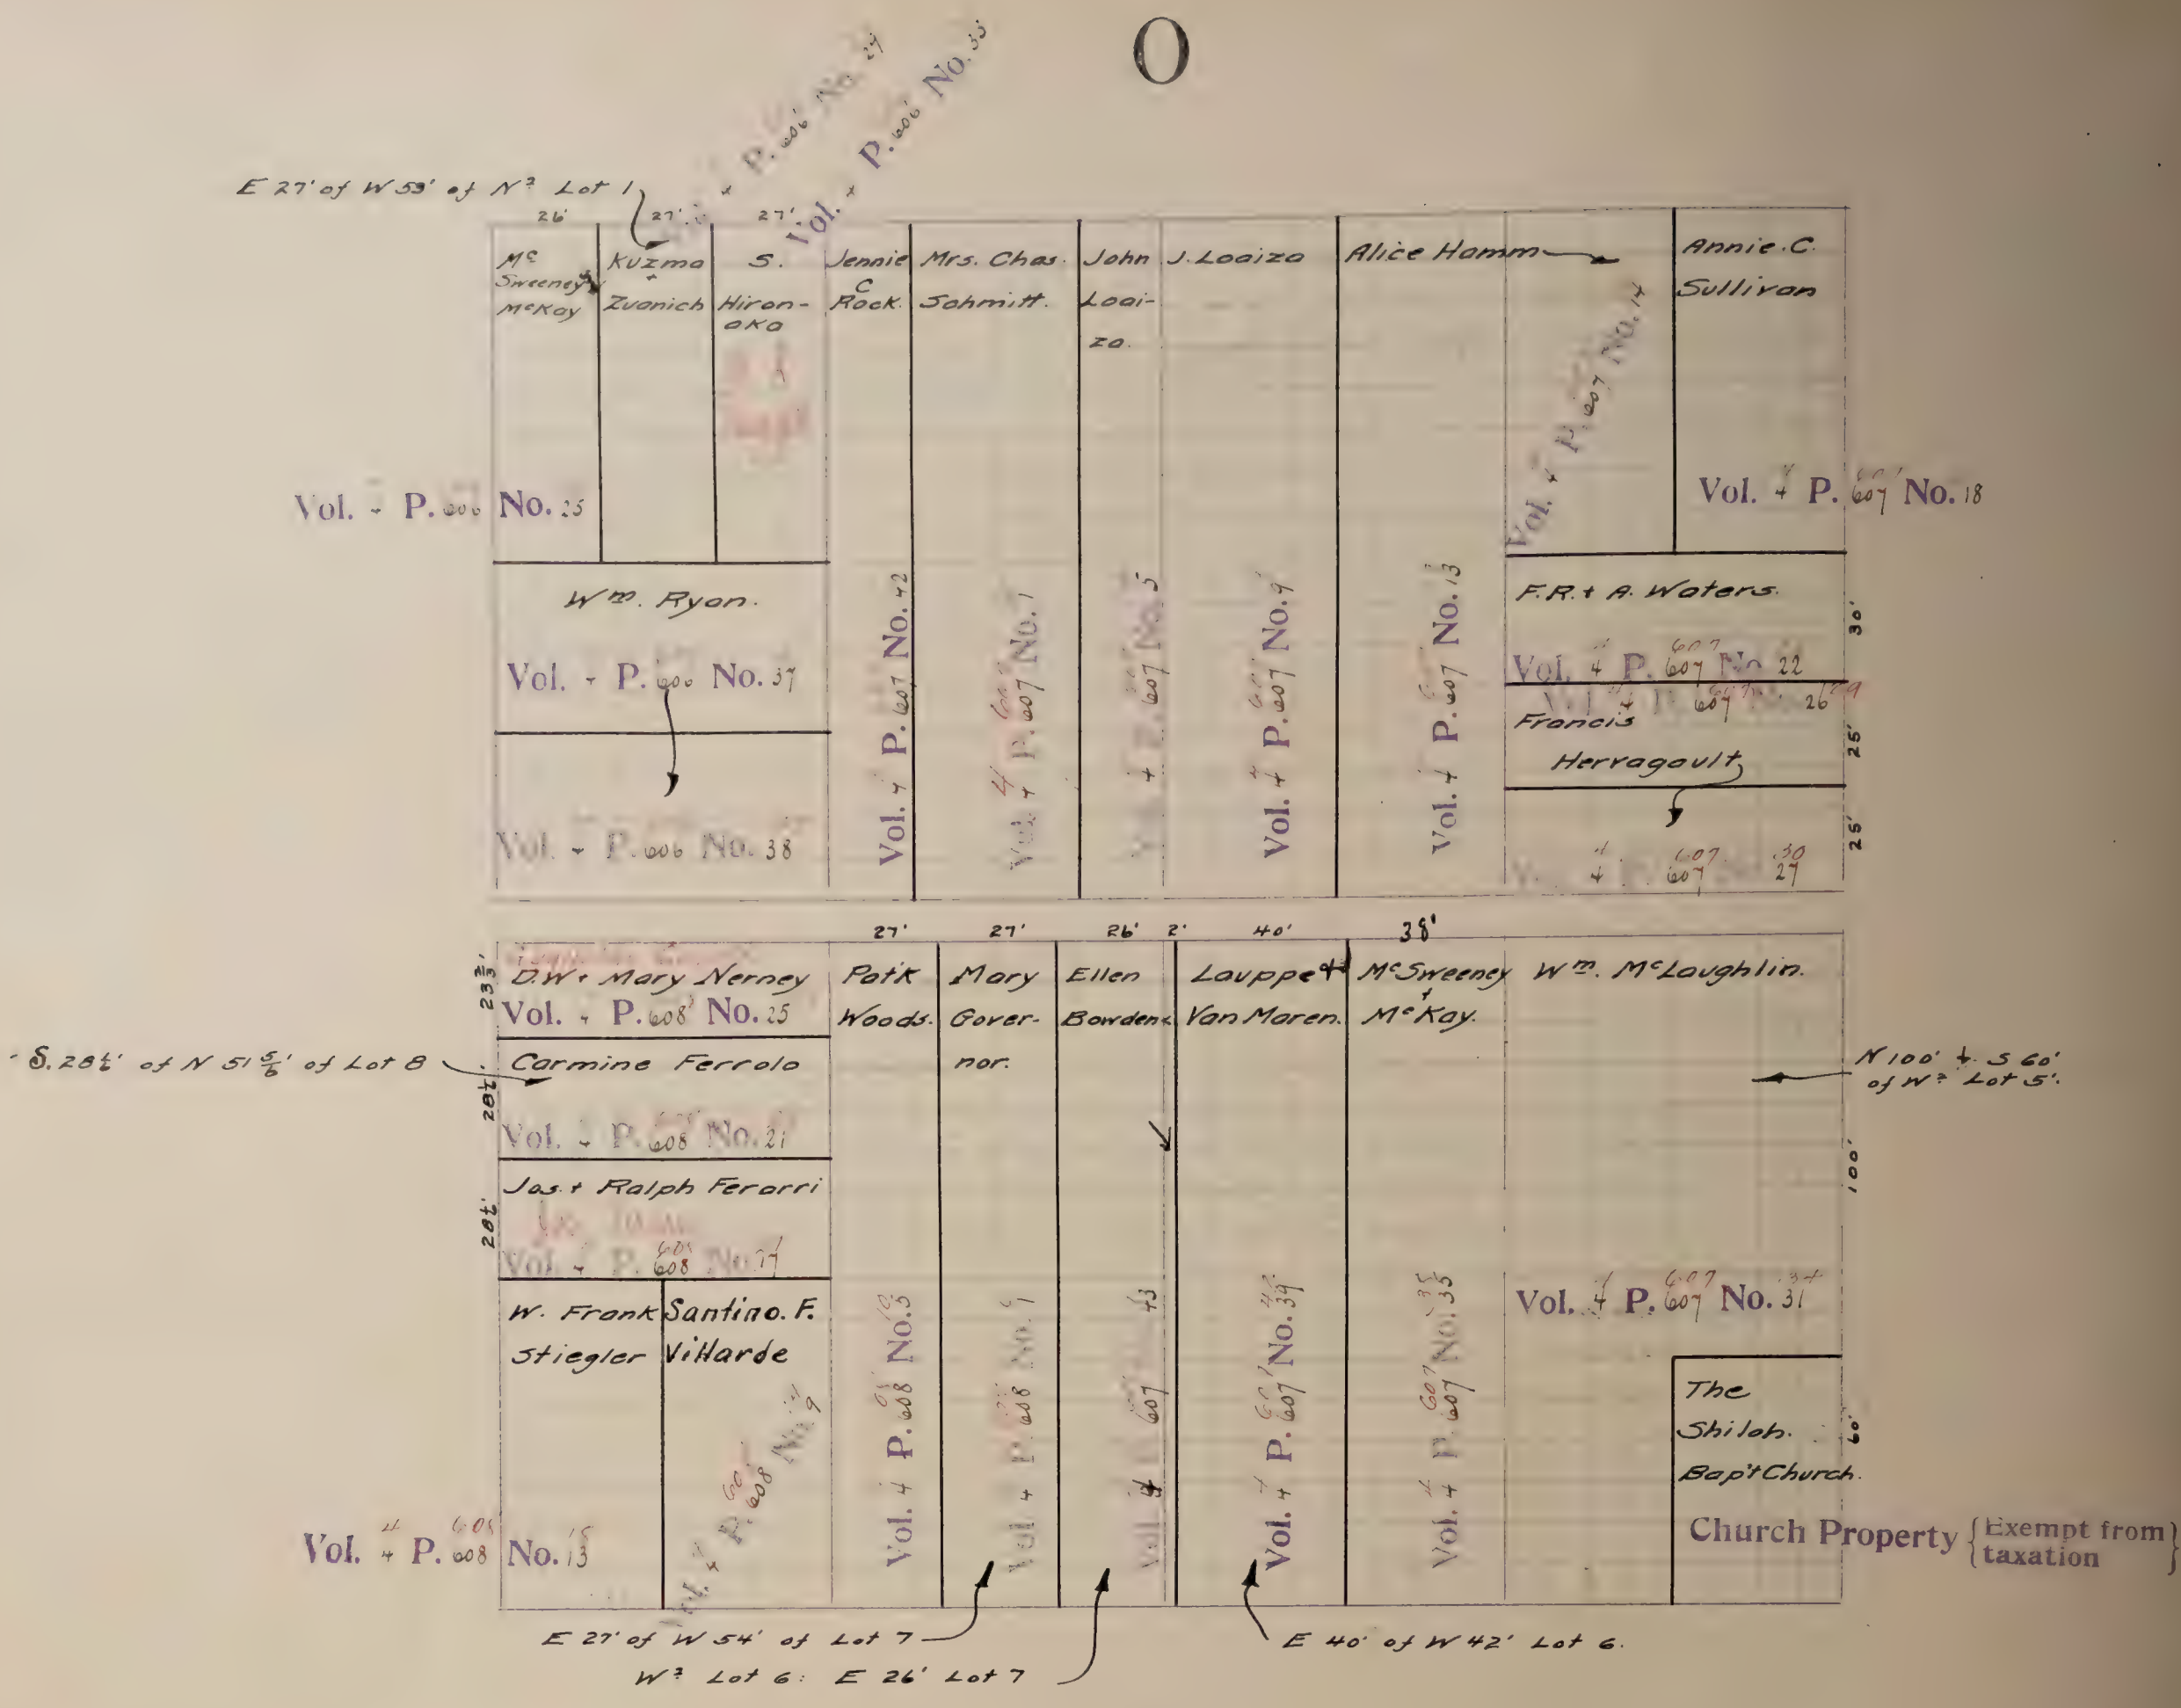 O
P. 606 No. 29
Vol. 4 P. 606 No. 33
E 27' of W 53' of N² Lot 1
26'
27'
27'
Mc Sweeney &
McKay
Kuzma
Zuanich
S.
Hiron-
aka
Jennie
C
Rock.
Mrs. Chas.
Schmitt.
John
Loai-
za.
J. Loaiza
Alice Hamm
Annie. C.
Sullivan
Vol. 4 P. 607 No. 14
Vol. 4 P. 606 No. 25
Vol. 4 P. 607 No. 18
Wm. Ryan.
Vol. 4 P. 606 No. 37
Vol. 4 P. 606 No. 38
Vol. 4 P. 607 No. 42
Vol. 4 P. 607 No. 1
4 P. 607 No. 5
Vol. 4 P. 607 No. 9
Vol. 4 P. 607 No. 13
F.R. + A. Waters.
30'
Vol. 4 P. 607 No. 22
4 607 26
Francis
Herragault
25'
25'
4 607 30
4 607 27
27'
27'
26'
2'
40'
38'
23⅔'
D.W + Mary Nerney
Vol. 4 P. 608 No. 25
Pat'k
Woods.
Mary
Gover-
nor.
Ellen
Bowden
Lauppe +
Van Maren.
McSweeney
+
McKay.
Wm. McLaughlin.
S. 28⅙' of N 51⅚' of Lot 8
Carmine Ferrolo
28⅙'
Vol. 4 P. 608 No. 21
N 100' + S 60'
of W² Lot 5'.
100'
Jos. + Ralph Ferarri
28⅙'
Vol. 4 P. 608 No. 17
W. Frank
Stiegler
Santino. F.
Villarde
Vol. 4 P. 608 No. 9
Vol. 4 P. 608 No. 13
Vol. 4 P. 608 No. 5
Vol. 4 P. 608 No. 1
Vol. 4 607 43
Vol. 4 P. 607 No. 39
Vol. 4 P. 607 No. 35
Vol. 4 P. 607 No. 31
The
Shiloh.
Bap't Church.
60'
Church Property {Exempt from
taxation}
E 27' of W 54' of Lot 7
W² Lot 6: E 26' Lot 7
E 40' of W 42' Lot 6.